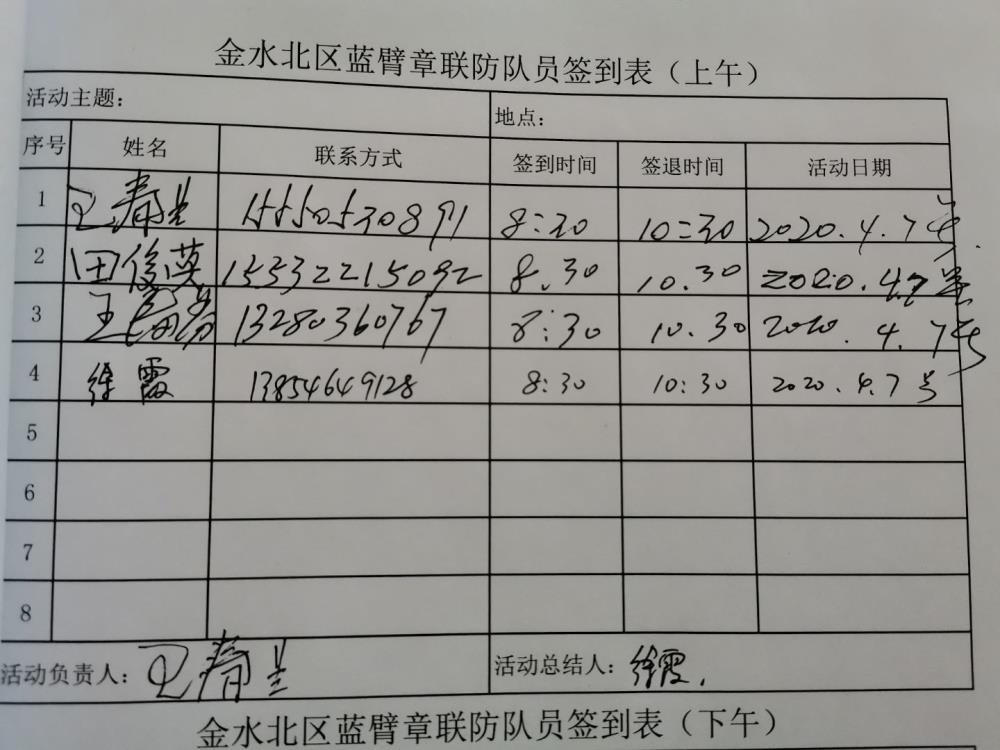 金水北区蓝臂章联防队员签到表（上午）
活动主题： 地点：
序号 姓名 联系方式 签到时间 签退时间 活动日期
1 王春兰 15550530891 8:30 10:30 2020.4.7号
2 田俊英 8.30 10.30 2020.4.7号
3 13280360767 8:30 10.30 2020.4.7号
4 徐霞 13854649128 8:30 10:30 2020.4.7号
5
6
7
8
活动负责人：王春兰 活动总结人：徐霞.
金水北区蓝臂章联防队员签到表（下午）